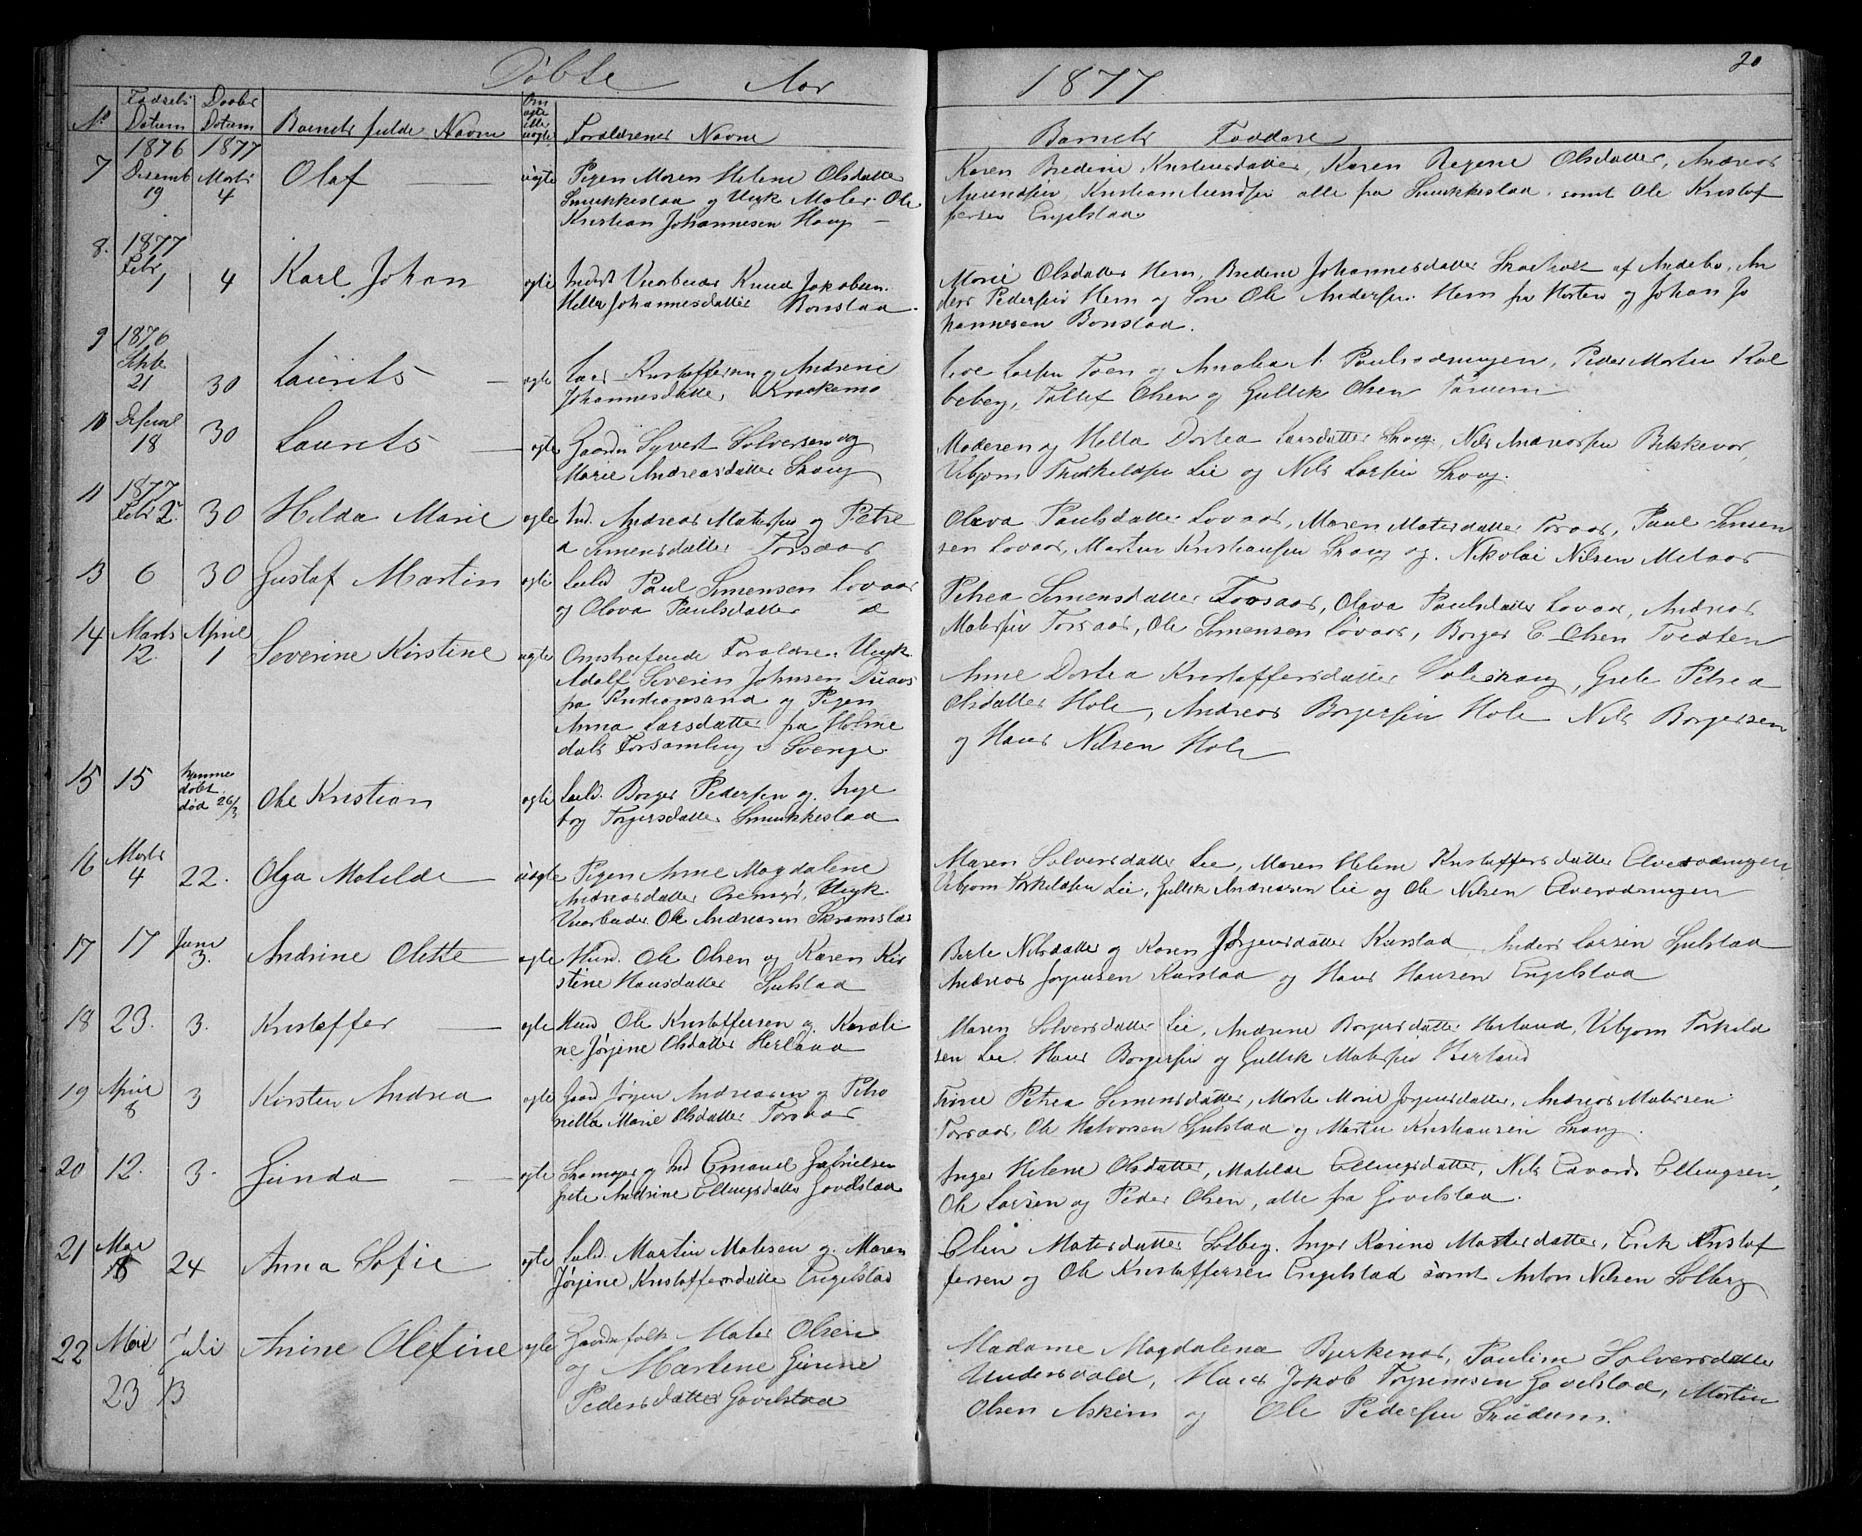 Døbte Aar 1877 20
No Fødsels Datum Daabs Datum Barnets fulde Navn Om ægte eller uægte Forældrenes Navne Barnets Faddere
1876 1877
7 Desemb 19 Marts 4 Olaf uægte Pigen Maren Helene Olsdatter
Smukkestad og Ungk Mater Ole
Kristian Johannesen Haug
Karen Bredine Kristensdatter, Karen Regene Olsdatter, Andreas
Amundsen, Kristian Amundsen alle fra Smukkestad samt Ole Kristof
fersen Engelstad
8. 1877 Febr 1 4 Karl Johan ægte Inds Knud Jakobsen.
Helle Johannesdatter Bonstad.
Marie Olsdatter Hem, Bredine Johannesdatter af Andebo, An
ders Pedersen Hem og Søn Ole Andersen Hem fra Horten og Johan Jo
hannesen Bonstad.
9 1876 Septb 21 30 Laurits ægte Lars Kristoffersen og Andrine
Johannesdatter Kraakemo
Lise Larsen Toen og Paulsrødningen, Peder Martin Kal
beberg, Tollef Olsen og Gullik Olsen
10 18 30 Laurits ægte Gaardm Syvert Solversen og
Marie Andreasdatter Skoug
Moderen og Helta Dortea Larsdatter Skoug, Nils Andreasen Bekkevar,
Vebjørn Lie og Nils Larsen Skoug.
11 1877 Febr 2 30 Hilda Marie ægte Ind. Andreas Matersen og Petre
a Simensdatter Torsaar
Olava Paulsdatter Lovaar, Maren Matersdatter Torsaar, Paul Simen
sen Lovaar, Martin Kristiansen Skoug og. Nikolai Nilsen Melaas
13 6 30 Gustaf Martin ægte Leild Paul Simensen Lovaar
og Olava Paulsdatter
Petrea Simensdatter Torsaar, Olava Paulsdatter Lovaar, Andreas
Matersen Torsaar, Ole Simensen Lovaar, Borger C Olsen Tvedten
14 Marts 12. April 1 Severine Kirstine uægte Omstreifende Forældre. Ungk.
Adolf Severin Johnsen
fra Kristiansand og Pigen
Anna Larsdatter fra Holme
dals Forsamling i Sverge
Anne Dortea Kristoffersdatter Soleskoug, Grete Petrea
Olsdatter Hole, Andreas Borgersen Hole Nils Borgersen
og Hans Nilsen Hole
15 15 hjemme døbt død 26/3 Ole Kristian ægte Leild. Borger Pedersen og. Inge
borg Torgersdatter Smukkestad
16 Marts 4 22. Olga Matilde uægte Pigen Anne Magdalene
Andreasdatter Ungk
Ole Andreasen
Maren Solversdatter Lie, Maren Helene Kristoffersdatter
Vebjørn Torkildsen Lie, Gullik Andreasen Lie og Ole Nilsen
17 17 Juni 3. Andrine Olette ægte Husm. Ole Olsen og Karen Kir
stine Hansdatter Gulstad
Berte Nilsdatter og Karen Jørgensdatter Karstad, Anders Larsen Gulstad
Andreas Jørgensen Karstad og Hans Hansen Engelstad
18 23. 3. Kristoffer ægte Husm Ole Kristoffersen og. Karoli
ne Jørgine Olsdatter Herland
Maren Solversdatter Lie, Andrine Borgersdatter Herland, Vebjørn Torkild
sen Lie. Hans Borgersen og Gullik Matersen Herland
19 April 8 3 Kirsten Andrea ægte Gaard Jørgen Andreasen og Petro
nella Marie Olsdatter Torsaar
Trine Petrea Simensdatter, Marte Marie Jørgensdatter, Andreas Matersen
Torsaar. Ole Halvorsen Gulstad og Martin Kristiansen Skoug.
20 12. 3. Gunda ægte Skomager og Ind Emanuel Gabrielsen
Andrine Ellingsdatter Gavelstad
Inger Helene Olsdatter, Matilde Ellingsdatter, Nils Edvard Ellingsen,
Ole Larsen og Peder Olsen, alle fra Gavelstad.
21 Mai 18 24 Anna Sofie ægte Leild. Martin Matisen og. Maren
Jørgine Kristoffersdatter Engelstad
Elin Matersdatter Solberg. Inger Karine Matersdatter, Erik Kristof
fersen og Ole Kristoffersen Engelstad samt Anton Nilsen Solberg
22 Mai 23 Juli 13 Anine Olefine ægte Gaardmfolk Mater Olsen
og Martene Gurine
Pedersdatter Gavelstad
Madame Magdalena Bjerkenæs, Pauline Solversdatter
Undersvald, Hans Jakob Gavelstad, Martin
Olsen Askim og Ole Pedersen